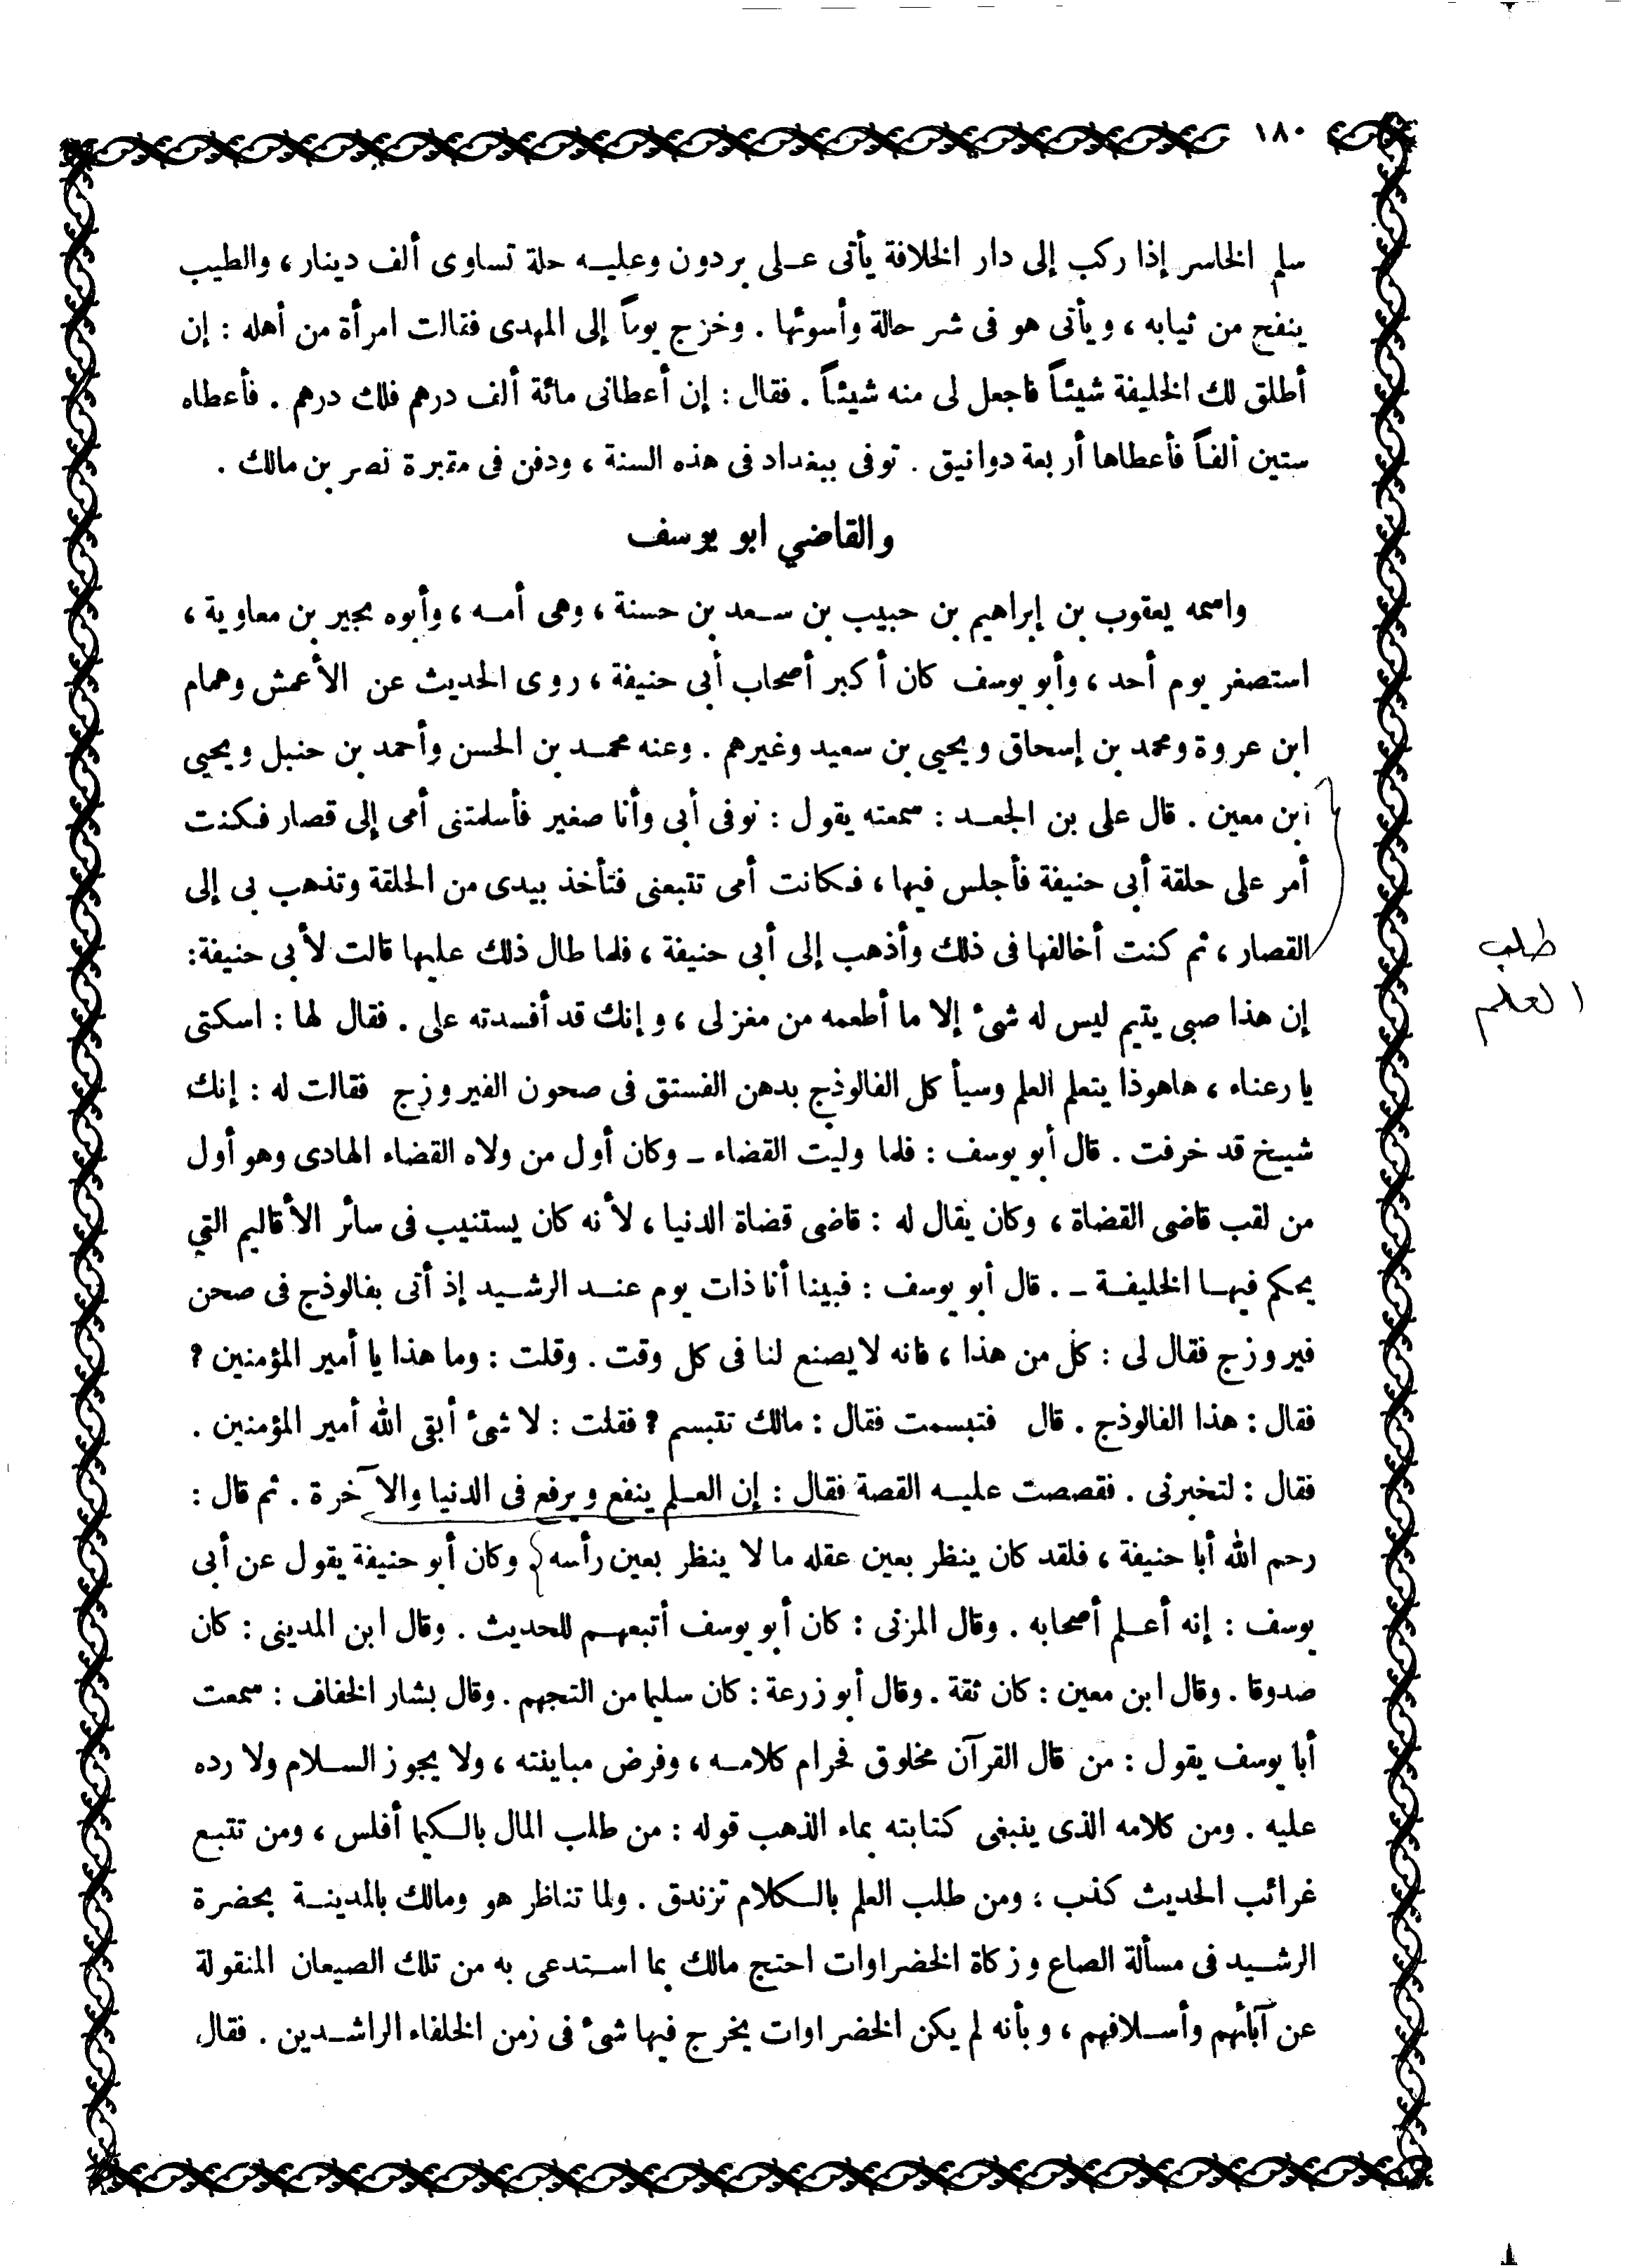 ١٨٠
سلم الخاسر إذا ركب إلى دار الخلافة يأتى على بردون وعليه حلة تساوى ألف دينار ، والطيب
ينفح من ثيابه ، ويأتى هو فى شر حالة وأسوئها . وخرج يوماً إلى المهدى فقالت امرأة من أهله : إن
أطلق لك الخليفة شيئاً فاجعل لى منه شيئاً . فقال : إن أعطانى مائة ألف درهم فلك درهم . فأعطاه
ستين ألفاً فأعطاها أربعة دوانيق . توفى ببغداد فى هذه السنة ، ودفن فى مقبرة نصر بن مالك .
والقاضي ابو يوسف
واسمه يعقوب بن إبراهيم بن حبيب بن سعد بن حسنة ، وهى أمه ، وأبوه بجير بن معاوية ،
استصغر يوم أحد ، وأبو يوسف كان أكبر أصحاب أبى حنيفة ، روى الحديث عن الأعمش وهمام
ابن عروة ومحمد بن إسحاق ويحيى بن سعيد وغيرهم . وعنه محمد بن الحسن وأحمد بن حنبل ويحيى
ابن معين . قال على بن الجعد : سمعته يقول : توفى أبى وأنا صغير فأسلمتنى أمى إلى قصار فكنت
أمر على حلقة أبى حنيفة فأجلس فيها ، فكانت أمى تتبعنى فتأخذ بيدى من الحلقة وتذهب بى إلى
القصار ، ثم كنت أخالفها فى ذلك وأذهب إلى أبى حنيفة ، فلما طال ذلك عليها قالت لأبى حنيفة :
طلب
العلم
إن هذا صبى يتيم ليس له شىء إلا ما أطعمه من مغزلى ، وإنك قد أفسدته على . فقال لها : اسكتى
يا رعناء ، هاهوذا يتعلم العلم وسيأ كل الفالوذج بدهن الفستق فى صحون الفيروزج فقالت له : إنك
شيخ قد خرفت . قال أبو يوسف : فلما وليت القضاء ــ وكان أول من ولاه القضاء الهادى وهو أول
من لقب قاضى القضاة ، وكان يقال له : قاضى قضاة الدنيا ، لأنه كان يستنيب فى سائر الأقاليم التي
يحكم فيها الخليفة ــ . قال أبو يوسف : فبينا أنا ذات يوم عند الرشيد إذ أتى بفالوذج فى صحن
فيروزج فقال لى : كل من هذا ، فانه لا يصنع لنا فى كل وقت . وقلت : وما هذا يا أمير المؤمنين ؟
فقال : هذا الفالوذج . قال فتبسمت فقال : مالك تتبسم ؟ فقلت : لا شىء أبقى الله أمير المؤمنين .
فقال : لتخبرنى . فقصصت عليه القصة فقال : إن العلم ينفع ويرفع فى الدنيا والآخرة . ثم قال :
رحم الله أبا حنيفة ، فلقد كان ينظر بعين عقله ما لا ينظر بعين رأسه . وكان أبو حنيفة يقول عن أبى
يوسف : إنه أعلم أصحابه . وقال المزنى : كان أبو يوسف أتبعهم للحديث . وقال ابن المدينى : كان
صدوقا . وقال ابن معين : كان ثقة . وقال أبو زرعة : كان سليما من التجهم . وقال بشار الخفاف : سمعت
أبا يوسف يقول : من قال القرآن مخلوق فحرام كلامه ، وفرض مباينته ، ولا يجوز السلام ولا رده
عليه . ومن كلامه الذى ينبغى كتابته بماء الذهب قوله : من طلب المال بالكيما أفلس ، ومن تتبع
غرائب الحديث كذب ؛ ومن طلب العلم بالكلام تزندق . ولما تناظر هو ومالك بالمدينة بحضرة
الرشيد فى مسألة الصاع وزكاة الخضراوات احتج مالك بما استدعى به من تلك الصيعان المنقولة
عن آبائهم وأسلافهم ، وبأنه لم يكن الخضراوات يخرج فيها شىء فى زمن الخلفاء الراشدين . فقال